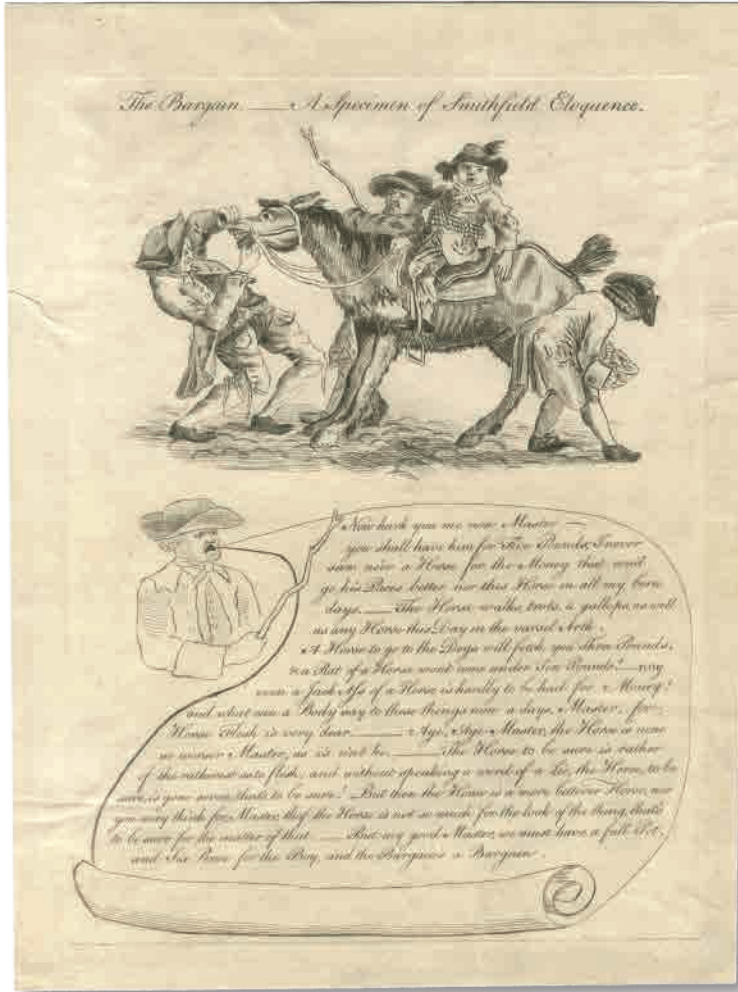 The Bargain — A Specimen of Smithfield Eloquence.
Now hark you me now Master —
you shall have him for Five Pounds, I never
saw now a Horse for the Money that wou'd
go his Paces better nor this Horse in all my born
days. — The Horse walks, trots, & gallops, as well
as any Horse this Day in the varsal Arth.
A Horse to go to the Dogs will fetch you Three Pounds,
& a Rat of a Horse wont come under Six Pounds! — nay
even a Jack Ass of a Horse is hardly to be had for Money!
and what can a Body say to these things now a days, Master, for
Horse Flesh is very dear. — Aye, Aye Master, the Horse is none
so worser Master, as is isn't he. — The Horse to be sure is rather
of the ratherest as to flesh, and without speaking a word of a Lie, the Horse, to be
sure, is gone seven thats to be sure! But then the Horse is a more betterer Horse, nor
you may think for Master, thof the Horse is not so much for the look of the thing, thats
to be sure for the matter of that — But my good Master, we must have a full Pot,
and Six Pence for the Boy, and the Bargain's a Bargain.